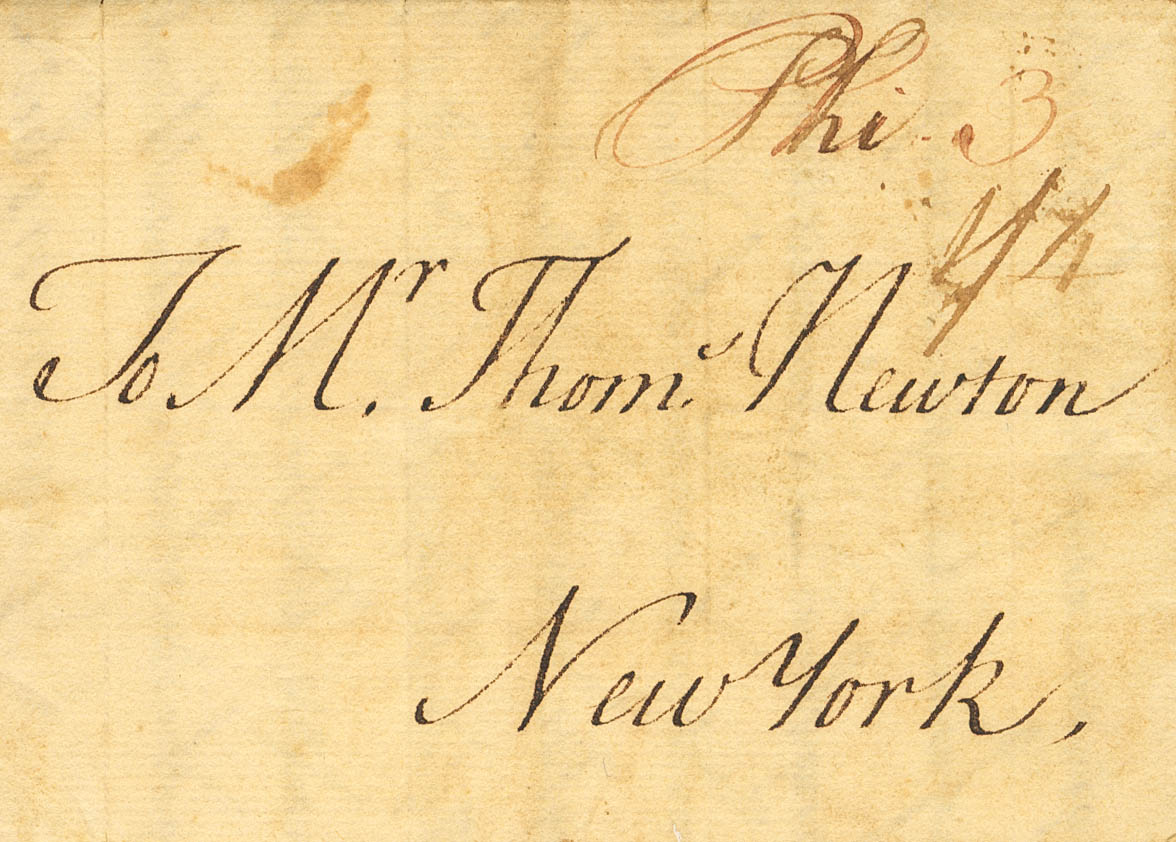 Phi. 3
To Mr. Thoms. Newton
New York,